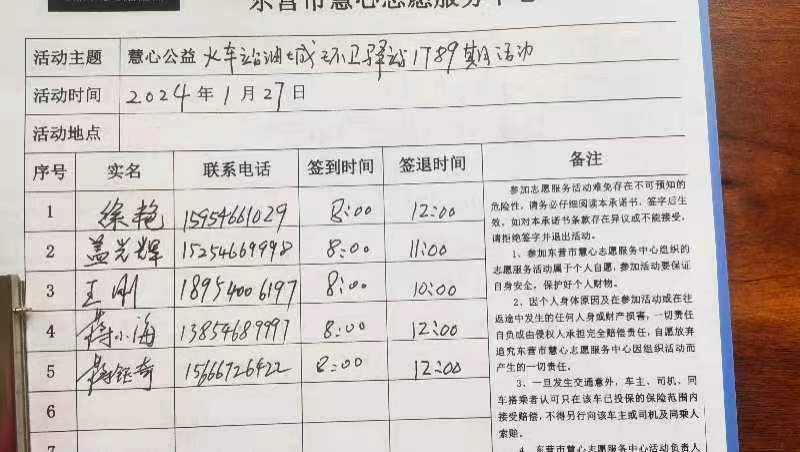 东营市慧心志愿服务中心
活动主题 慧心公益 火车站油城环卫驿站1789期活动
活动时间 2024年1月27日
活动地点
序号 实名 联系电话 签到时间 签退时间 备注
1 徐艳 15954661029 8:00 12:00
2 盖光辉 15254669998 8:00 11:00
3 王刚 18954006197 8:00 10:00
4 蒋小海 13854689997 8:00 12:00
5 蒋钰奇 15666726422 8:00 12:00
6
7
参加志愿服务活动难免存在不可预知的
危险性，请务必仔细阅读本承诺书，签字后生
效。如对本承诺书条款存在异议或不能接受，
请拒绝签字并退出活动。
1、参加东营市慧心志愿服务中心组织的
志愿服务活动属于个人自愿，参加活动要保证
自身安全，保护好个人财物。
2、因个人身体原因及在参加活动或在往
返途中发生的任何人身或财产损害，一切责任
自负或由侵权人承担完全赔偿责任，自愿放弃
追究东营市慧心志愿服务中心因组织活动而
产生的一切责任。
3、一旦发生交通意外，车主、司机、同
车搭乘者认可只在该车已投保的保险范围内
接受赔偿，不得另行向该车主或司机及同乘人
索赔。
4、东营市慧心志愿服务中心活动负责人